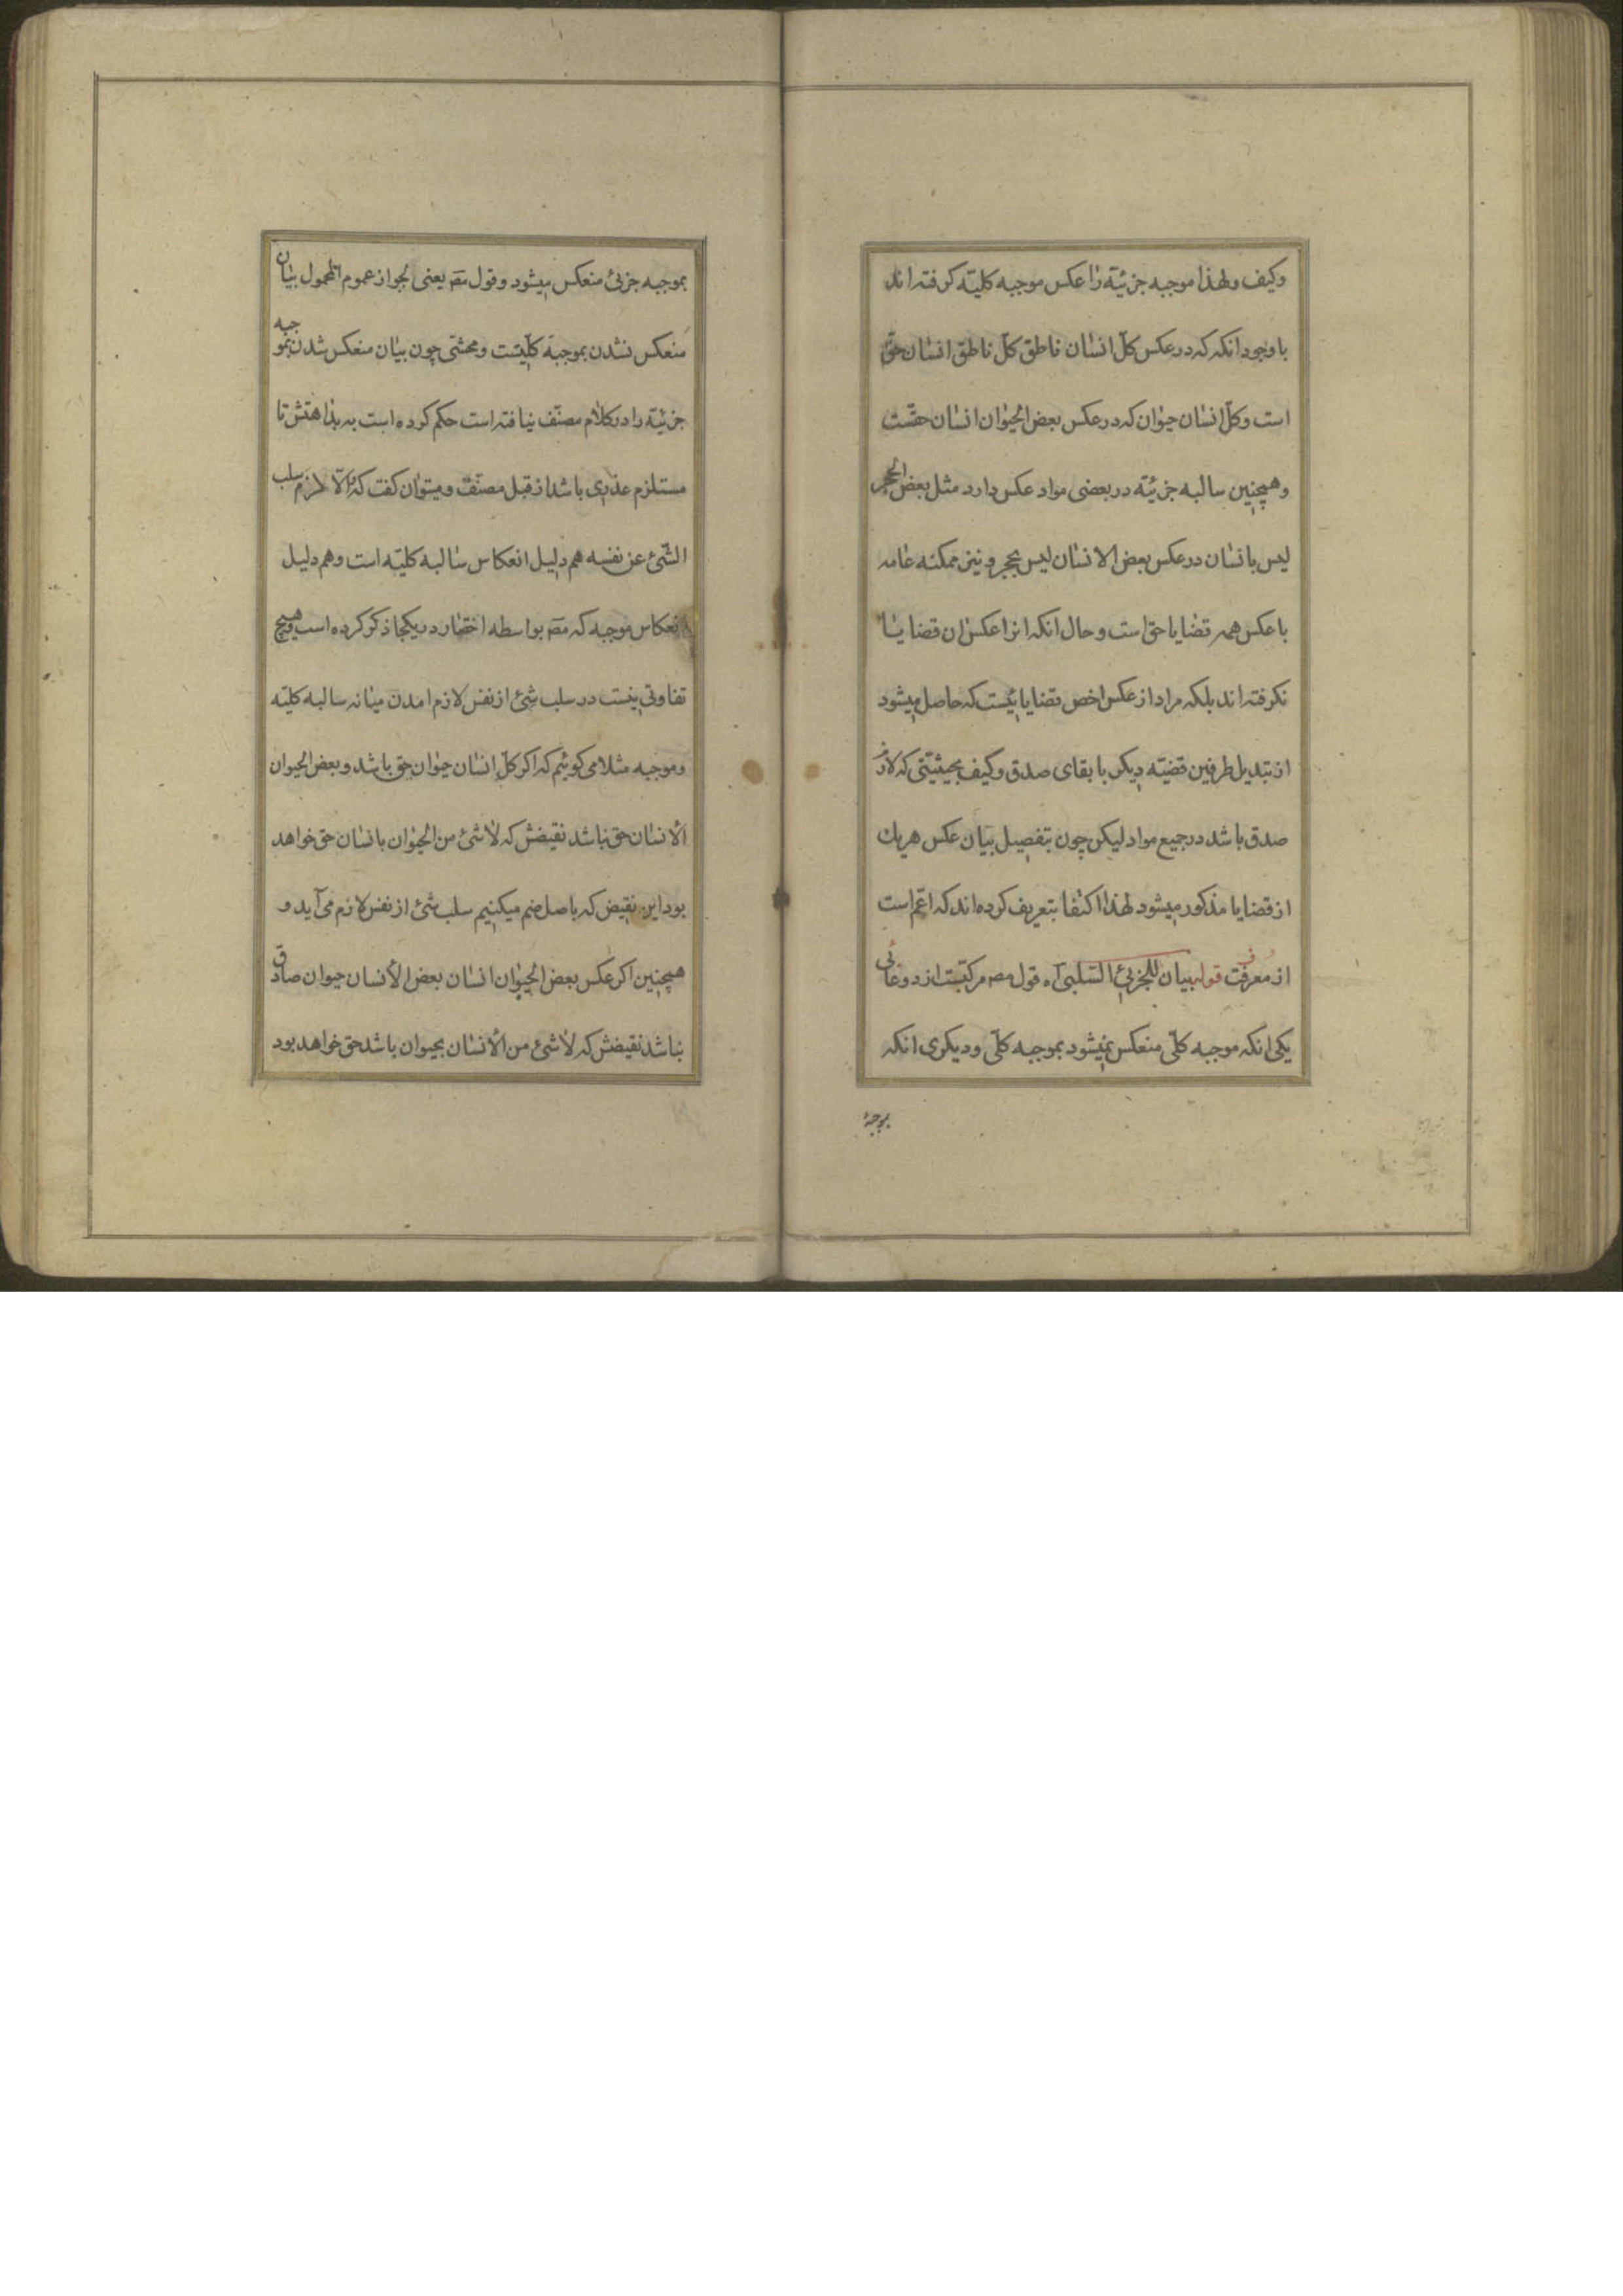 وکیف ولهذا موجبه جزئیّه را عکس موجبه کلیّه کرفته اند
با وجود انکه که در عکس کلّ انسان ناطق کلّ ناطق انسان حقّ
است وکلّ انسان حیوان که در عکس بعض الحیوان انسان حقّست
وهمچنین سالبه جزئیّه در بعضی مواد عکس دارد مثل بعض الحجر
لیس بانسان در عکس بعض الانسان لیس بحجر و نیز ممکنه عامه
با عکس همه قضایا حق است و حال انکه انرا عکس ان قضایا
نکرفته اند بلکه مراد از عکس اخص قضایائیست که حاصل میشود
از تبدیل طرفین قضیّه دیکر با بقای صدق وکیف بحیثیّتی که لازم
صدق باشد در جمیع مواد لیکن چون بتفصیل بیان عکس هریك
از قضایا مذکور میشود لهذا اکتفا بتعریف کرده اند که اعّم است
از معرف قوله بیان للجزئی السّلبی آه قول مص مرکبّست از دو
یکی انکه موجبه کلّی منعکس نمیشود بموجبه کلّی و دیکری انکه
بموجبه
بموجبه جزئی منعکس میشود و قول مص یعنی لجواز عموم المحمول بیان
منعکس نشدن بموجبه کلّیّست ومحشّی چون بیان منعکس شدن بموجبه
جزئیّه را در کلام مصنّف نیافته است حکم کرده است به بداهتش تا
مستلزم عذری باشد از قبل مصنّف و میتوان کفت که والّا لازم سلب
الشّئ عن نفسه هم دلیل انعکاس سالبه کلیّه است وهم دلیل
انعکاس موجبه که مص بواسطه اختصار در یکجا ذکر کرده است وهیچ
تفاوتی نیست در سلب شئ از نفس لازم امدن میانه سالبه کلیّه
وموجبه مثلا می کوئیم که اکر کلّ انسان حیوان حق باشد و بعض الحیوان
الانسان حق نباشد نقیضش که لاشئ من الحیوان بانسان حق خواهد
بود این نقیض که باصل ضم میکنیم سلب شئ از نفس لازم می آید و
همچنین اکر عکس بعض الحیوان انسان بعض الأنسان حیوان صادق
نباشد نقیضش که لاشئ من الأنسان بحیوان باشد حق خواهد بود